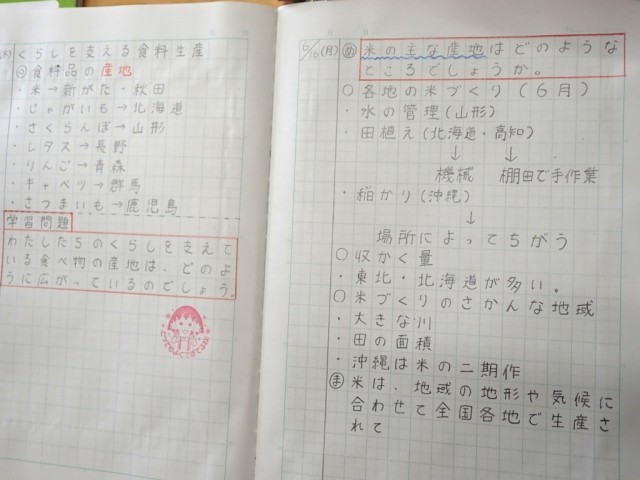 (木) くらしを支える食料生産
◎食料品の産地
・米→新がた・秋田
・じゃがいも→北海道
・さくらんぼ→山形
・レタス→長野
・りんご→青森
・キャベツ→群馬
・さつまいも→鹿児島
学習問題
わたしたちのくらしを支えて
いる食べ物の産地は、どのよ
うに広がっているのでしょう。
6/16(月)
め 米の主な産地はどのような
ところでしょうか。
○各地の米づくり(6月)
・水の管理(山形)
・田植え(北海道・高知)
↓ ↓
機械 棚田で手作業
・稲かり(沖縄)
↓
場所によってちがう
○収かく量
・東北・北海道が多い。
○米づくりのさかんな地域
・大きな川
・田の面積
・沖縄は米の二期作
ま 米は、地域の地形や気候に
合わせて全国各地で生産さ
れて